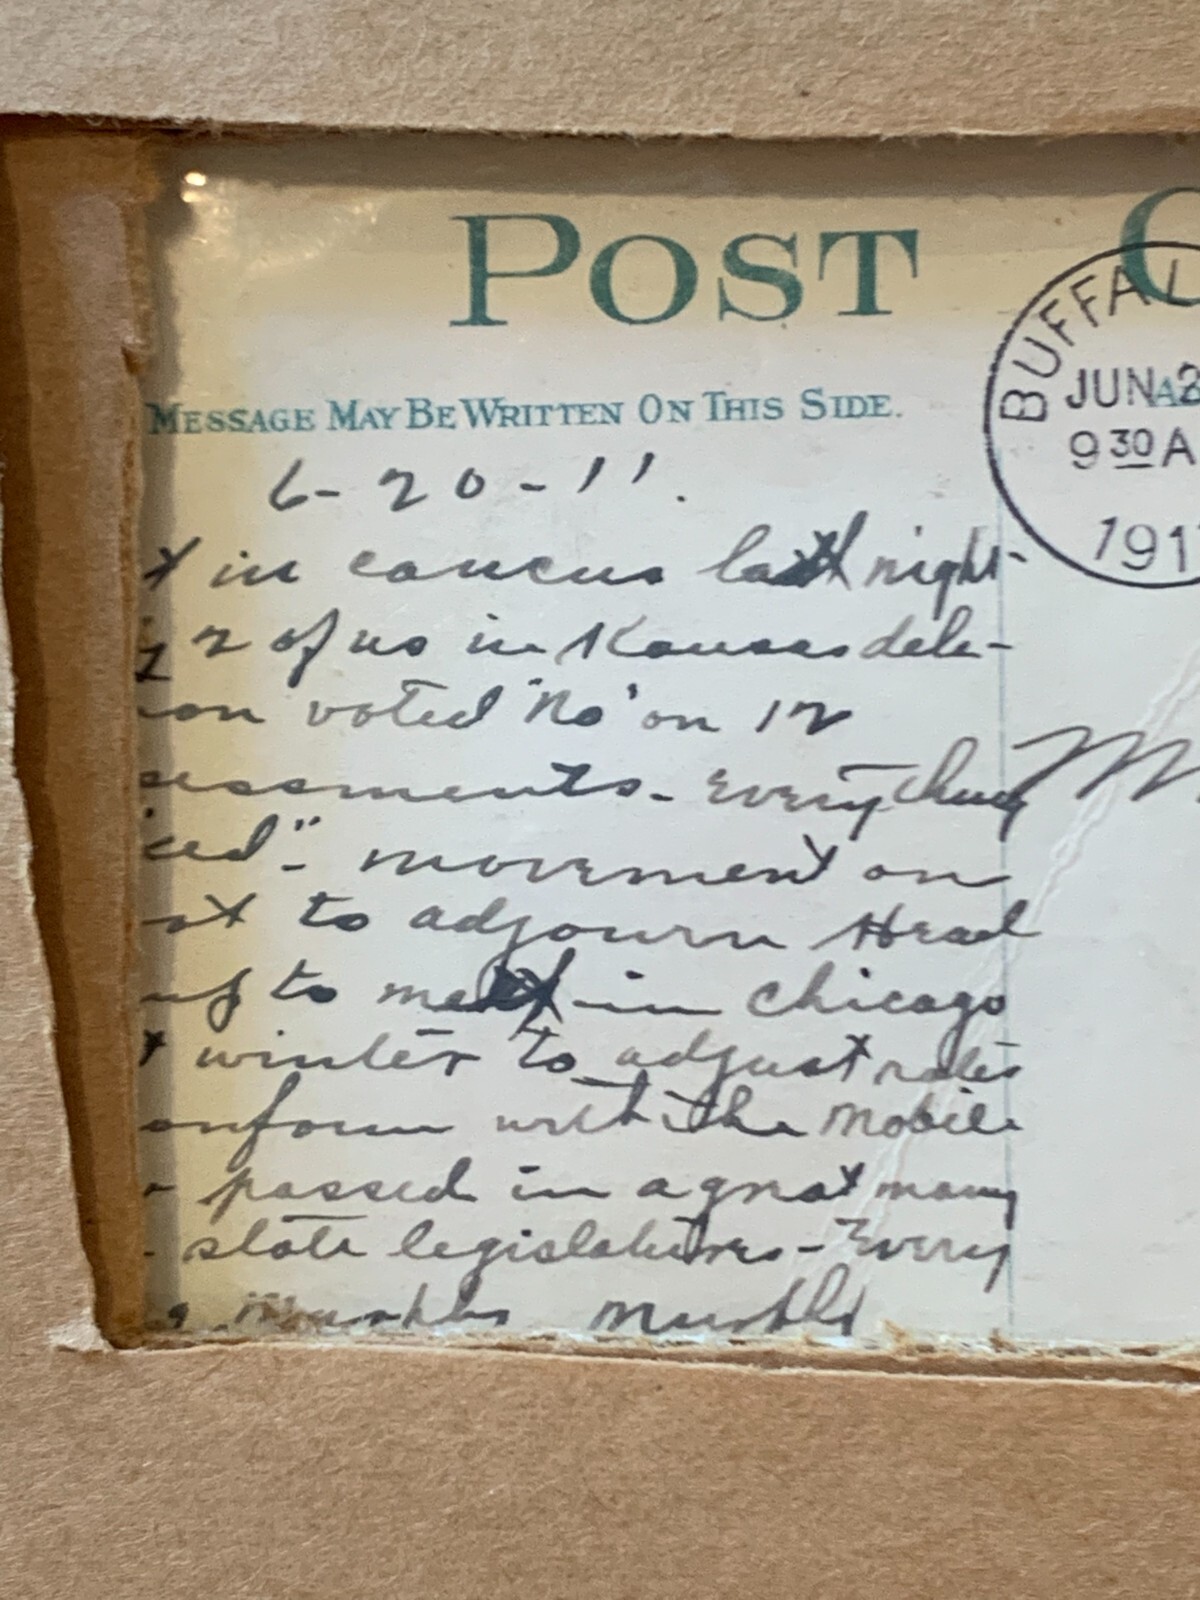 POST
BUFFAL
JUN 2
9 30 A
191
MESSAGE MAY BE WRITTEN ON THIS SIDE.
6-20-11.
in caucus last night-
2 of us in Kansas dele-
on voted "No" on 12
sessments - Everything
ced" - movement on
ot to adjourn Head
to meet in Chicago
winter to adjust rates
onform with the Mobile
passed in a great many
state legislatures - Every
M